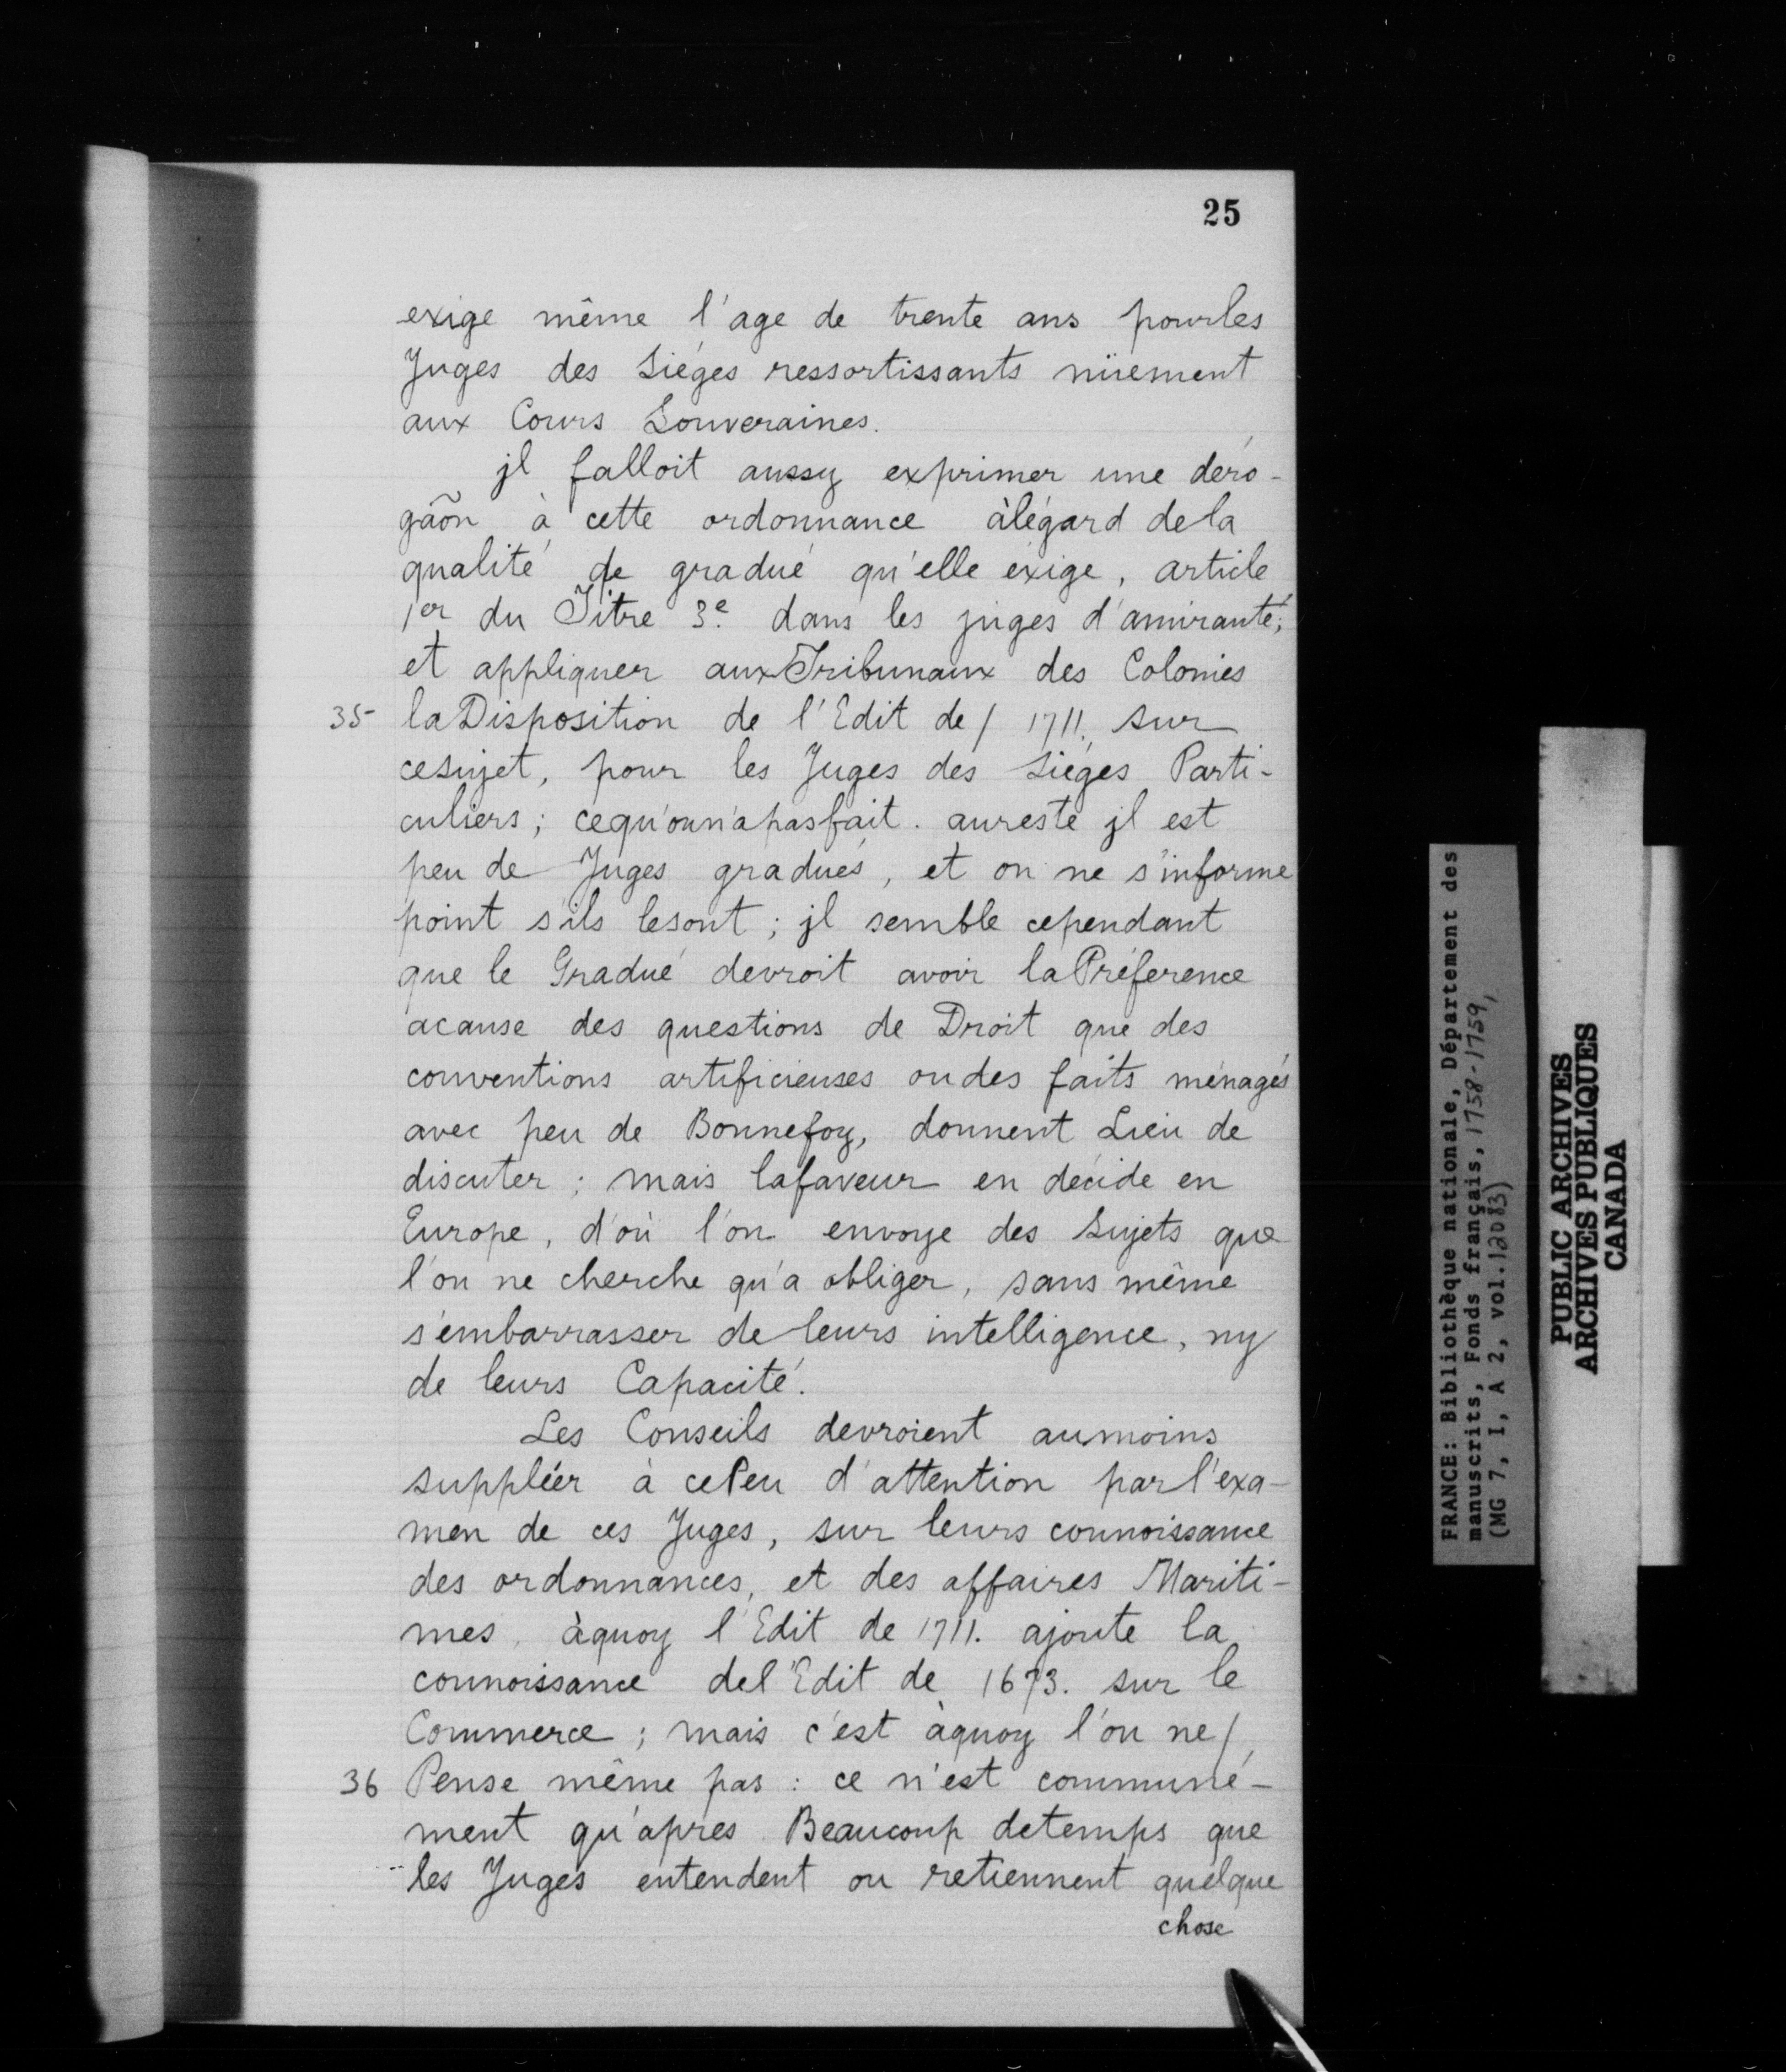 25
exige même l'age de trente ans pourles
Juges des Siéges ressortissants nüement
aux Cours Souveraines.
jl falloit aussy exprimer une déro-
gaõn à cette ordonnance àlégard dela
qualité de gradué qu'elle éxige, article
1er du Titre 3e. dans les juges d'amirauté;
et appliquer aux Tribunaux des Colonies
35 la Disposition de l'Edit de / 1711. sur
cesujet, pour les Juges des siéges Parti-
culiers; cequ'oun'apasfait. aureste jl est
peu de Juges gradués, et on ne s'informe
point s'ils lesont; jl semble cependant
que le Gradué devroit avoir la Préference
acause des questions de Droit que des
conventions artificieuses oudes faits ménagés
avec peu de Bonnefoy, donnent Lieu de
discuter; mais lafaveur en décide en
Europe, d'où l'on envoye des Sujets que
l'on ne cherche qu'a obliger, sans même
s'embarrasser de leurs intelligence, ny
de leurs Capacité.
Les Conseils devroient aumoins
suppléer à cePeu d'attention par l'exa-
men de ces Juges, sur leurs connoissance
des ordonnances, et des affaires Mariti-
mes, àquoy l'Edit de 1711. ajoute la
connoissance del'Edit de 1673. sur le
Commerce; mais c'est àquoy l'on ne /
36 Pense même pas: ce n'est communé-
ment qu'après Beaucoup detemps que
les Juges entendent ou retiennent quelque
chose
FRANCE: Bibliothèque nationale, Département des
manuscrits, Fonds français, 1758-1759,
(MG 7, I, A 2, vol. 12083)
PUBLIC ARCHIVES
ARCHIVES PUBLIQUES
CANADA